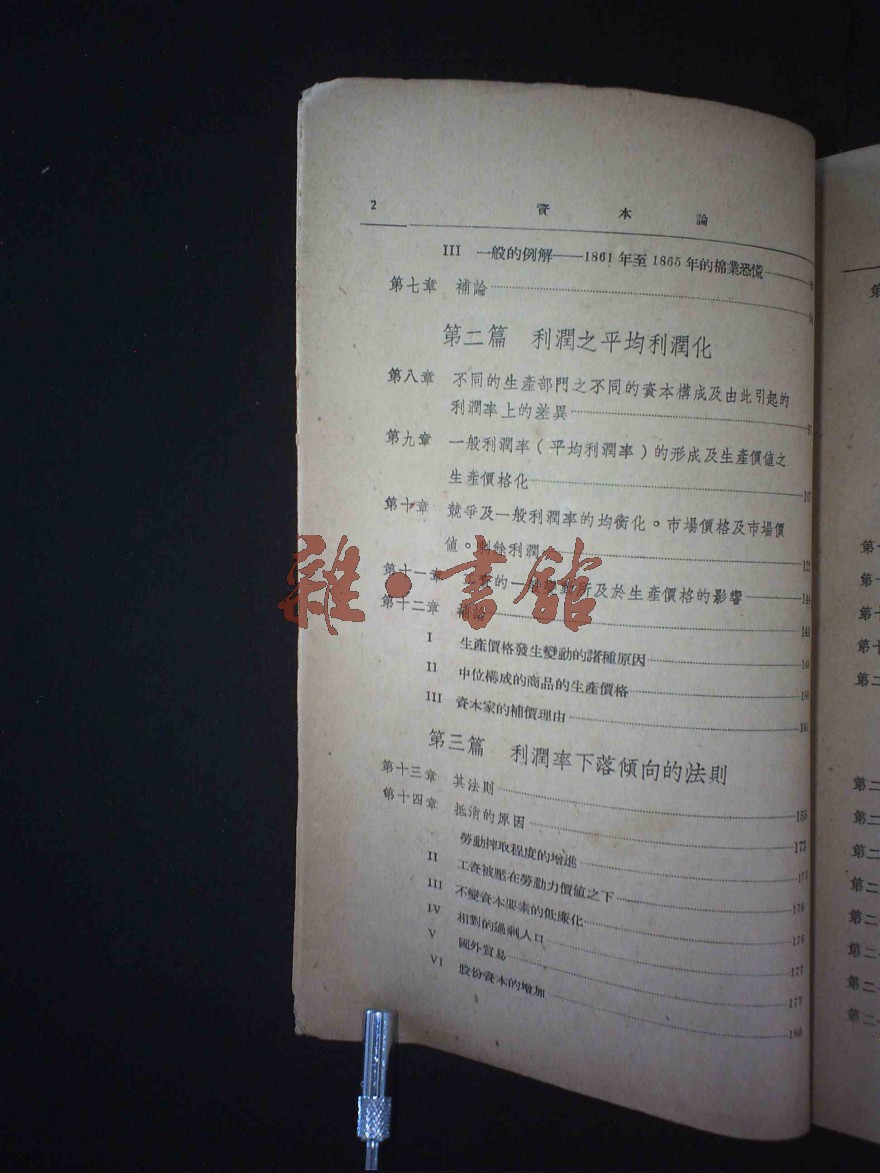 2 資本論
III 一般的例解——1861年至1865年的棉業恐慌
第七章 補論
第二篇 利潤之平均利潤化
第八章 不同的生產部門之不同的資本構成及由此引起的
利潤率上的差異
第九章 一般利潤率(平均利潤率)的形成及生產價值之
生產價格化
第十章 競爭及一般利潤率的均衡化。市場價格及市場價
值。剩餘利潤
第十一章 的一般 所及於生產價格的影響 144
第十二章 補論
I 生產價格發生變動的諸種原因
II 中位構成的商品的生產價格
III 資本家的補價理由
第三篇 利潤率下落傾向的法則
第十三章 其法則 155
第十四章 抵消的原因 173
勞動搾取程度的增進 173
II 工資被壓在勞動力價值之下 176
III 不變資本要素的低廉化 176
IV 相對的過剩人口 177
V 國外貿易 177
VI 股份資本的增加 180
雜·書館
第
第十
第十
第十
第十
第二
第二
第二
第二
第二
第二
第二
第二
第二